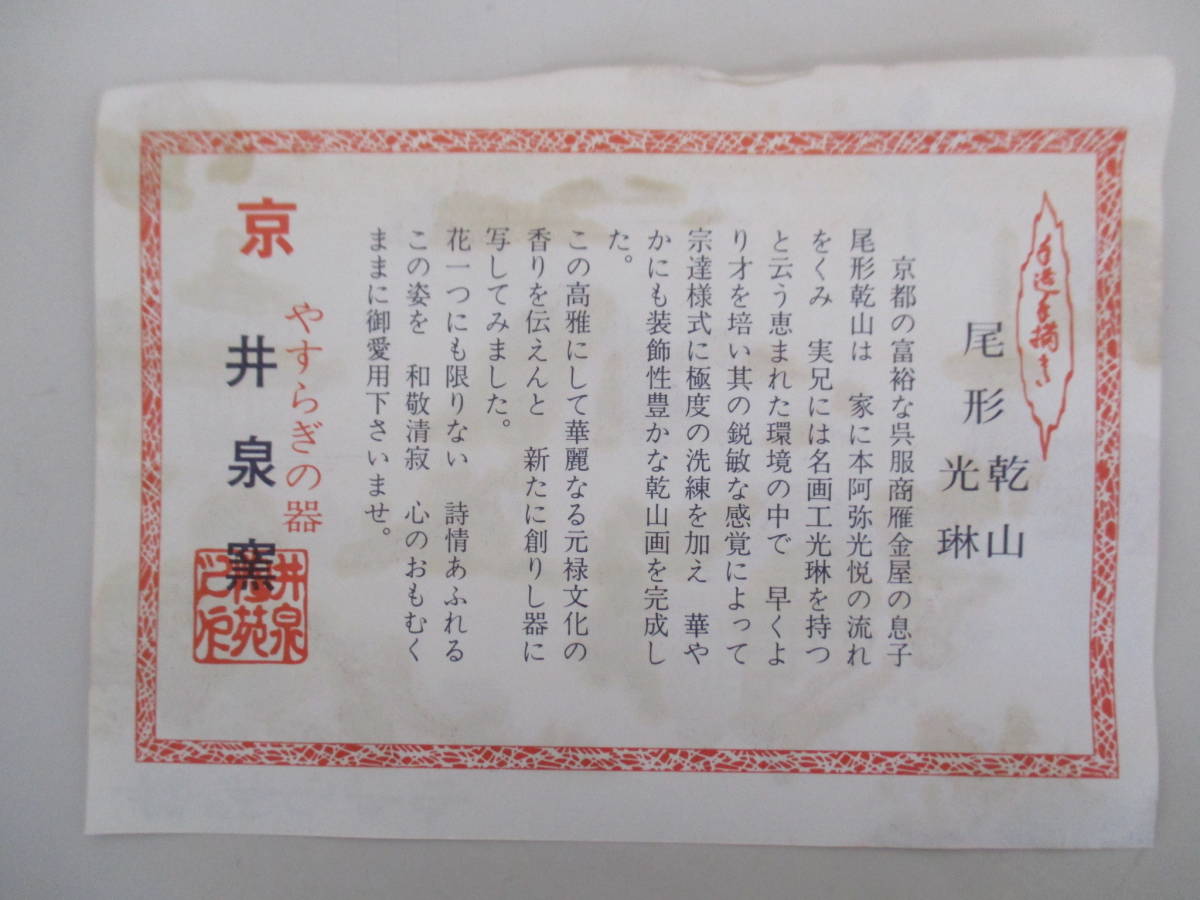 手造り手描き
尾形 乾山
光琳
京都の富裕な呉服商雁金屋の息子
尾形乾山は 家に本阿弥光悦の流れ
をくみ 実兄には名画工光琳を持つ
と云う恵まれた環境の中で 早くよ
り才を培い其の鋭敏な感覚によって
宗達様式に極度の洗練を加え 華や
かにも装飾性豊かな乾山画を完成し
た。
この高雅にして華麗なる元禄文化の
香りを伝えんと 新たに創りし器に
写してみました。
花一つにも限りない 詩情あふれる
この姿を 和敬清寂 心のおもむく
ままに御愛用下さいませ。
やすらぎの器
京 井泉窯
井泉